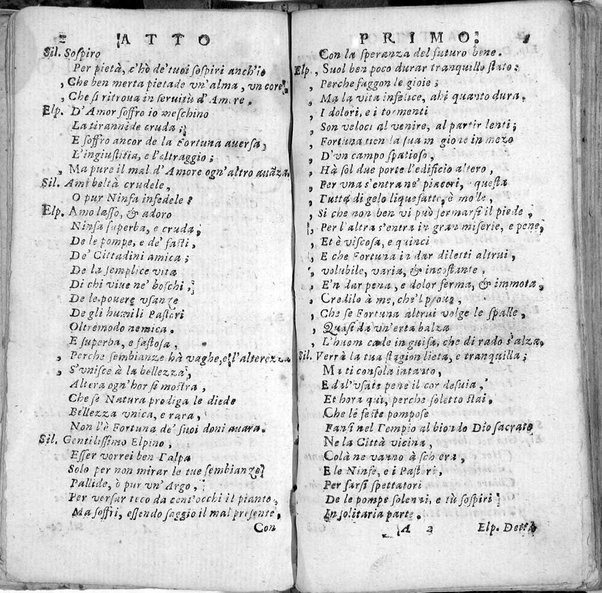 2 ATTO
Sil. Sospiro
Per pietà, c'hò de' tuoi sospiri anch'io
, Che ben merta pietade vn'alma, vn core
, Che si ritroua in seruitù d'Amore.
Elp. D'Amor soffro io meschino
La tirannide cruda;
E soffro ancor de la Fortuna auersa,
L'ingiustitia, e l'oltraggio;
, Ma pure il mal d'Amore ogn'altro auāza.
Sil. Ami beltà crudele,
O pur Ninfa infedele?
Elp. Amo lasso, & adoro
Ninfa superba, e cruda,
De le pompe, e de' fasti,
De' Cittadini amica;
De la semplice vita
Di chi viue ne' boschi,
De le pouere vsanze
De gli humili Pastori
Oltremodo nemica.
E superba, e fastosa,
, Perche sembianze hà vaghe, e l'alterezza
, S'vnisce à la bellezza,
Altera ogn'hor si mostra,
Che se Natura prodiga le diede
Bellezza vnica, e rara,
Non l'è Fortuna de' suoi doni auara.
Sil. Gentilissimo Elpino,
Esser vorrei ben Talpa
Solo per non mirar le tue sembianze
Pallide, ò pur vn'Argo,
Per versar teco da cent'occhi il pianto,
Ma soffri, essendo saggio il mal presente,
Con
PRIMO.
Con la speranza del futuro bene.
Elp. , Suol ben poco durar tranquillo stato:
, Perche fuggon le gioie;
, Ma la vita infelice, ahi quanto dura.
, I dolori, e i tormenti
, Son veloci al venire, al partir lenti;
, Fortuna tien la sua magione in mezo
, D'vn campo spatioso,
, Hà sol due porte l'edificio altero,
, Per vna s'entra ne' piaceri, questa
, Tutta di gelo liquefatto, è molle,
, Si che non ben vi può fermarsi il piede,
, Per l'altra s'entra in gran miserie, e pene,
, Et è viscosa, e quinci
, E che Fortuna in dar diletti altrui,
, volubile, varia, & incostante,
, E'n dar pena, e dolor ferma, & immota,
, Credilo à me, che'l prouo,
, Che se Fortuna altrui volge le spalle,
, Quasi da vn'erta balza
, L'huom cade in guisa, che di rado s'alza.
Sil. Verrà la tua stagion lieta, e tranquilla;
Ma ti consola intanto,
Ed à l'vsate pene il cor desuia,
Et hora qui, perche soletto stai,
Che le feste pompose
Fansi nel Tempio al biondo Dio sacrato
Ne la Città vicina,
Colà ne vanno à schiera,
E le Ninfe, e i Pastori,
Per farsi spettatori
De le pompe solenni, e tù sospiri
In solitaria parte.
A 2 Elp. Detta